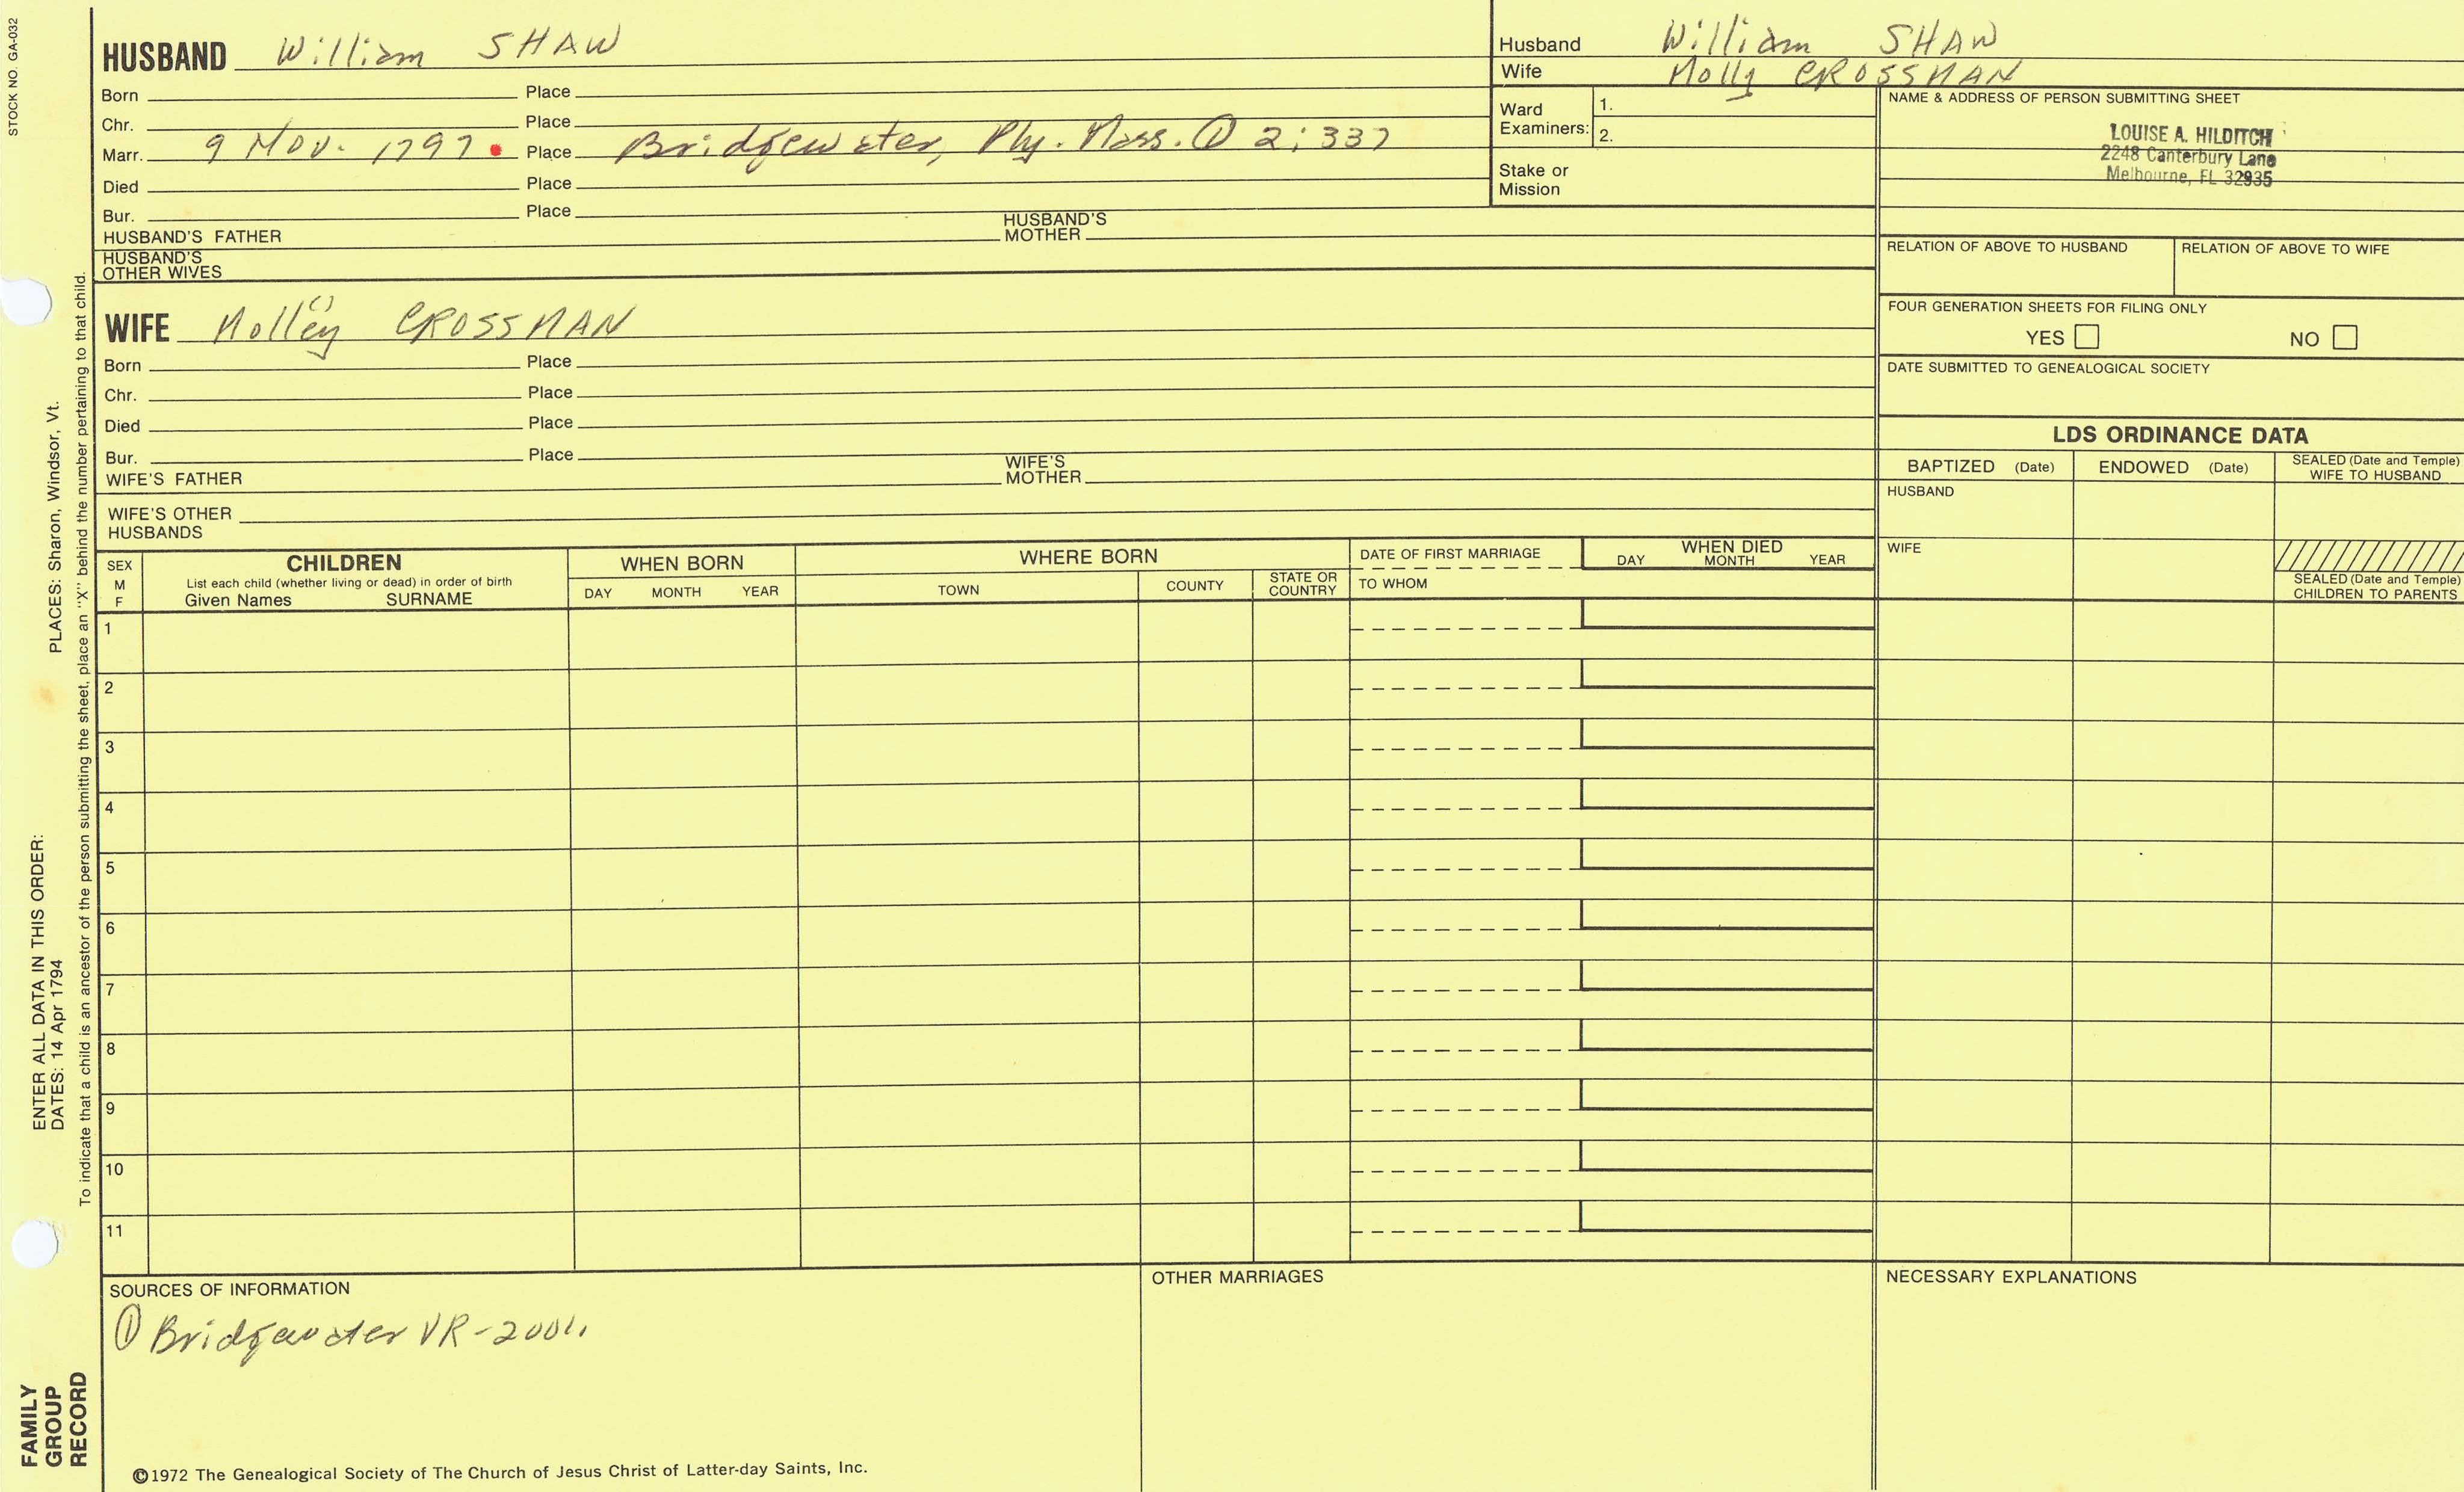 STOCK NO. GA-032
HUSBAND William SHAW
Born Place
Chr. Place
Marr. 9 Nov. 1797 Place Bridgewater, Ply. Mass. ① 2:337
Died Place
Bur. Place
HUSBAND'S FATHER HUSBAND'S MOTHER
HUSBAND'S OTHER WIVES
Husband William SHAW
Wife Molly CROSSMAN
Ward Examiners: 1.
2.
Stake or Mission
NAME & ADDRESS OF PERSON SUBMITTING SHEET
LOUISE A. HILDITCH
2248 Canterbury Lane
Melbourne, FL 32935
RELATION OF ABOVE TO HUSBAND RELATION OF ABOVE TO WIFE
FOUR GENERATION SHEETS FOR FILING ONLY
YES NO
DATE SUBMITTED TO GENEALOGICAL SOCIETY
WIFE Molley CROSSMAN
Born Place
Chr. Place
Died Place
Bur. Place
WIFE'S FATHER WIFE'S MOTHER
WIFE'S OTHER HUSBANDS
LDS ORDINANCE DATA
BAPTIZED (Date) ENDOWED (Date) SEALED (Date and Temple) WIFE TO HUSBAND
HUSBAND
WIFE
SEALED (Date and Temple) CHILDREN TO PARENTS
SEX M F
CHILDREN
List each child (whether living or dead) in order of birth
Given Names SURNAME
WHEN BORN
DAY MONTH YEAR
WHERE BORN
TOWN COUNTY STATE OR COUNTRY
DATE OF FIRST MARRIAGE
TO WHOM
WHEN DIED
DAY MONTH YEAR
1
2
3
4
5
6
7
8
9
10
11
SOURCES OF INFORMATION
① Bridgewater VR-
OTHER MARRIAGES
NECESSARY EXPLANATIONS
©1972 The Genealogical Society of The Church of Jesus Christ of Latter-day Saints, Inc.
FAMILY
GROUP
RECORD
ENTER ALL DATA IN THIS ORDER:
DATES: 14 Apr 1794 PLACES: Sharon, Windsor, Vt.
To indicate that a child is an ancestor of the person submitting the sheet, place an "X" behind the number pertaining to that child.